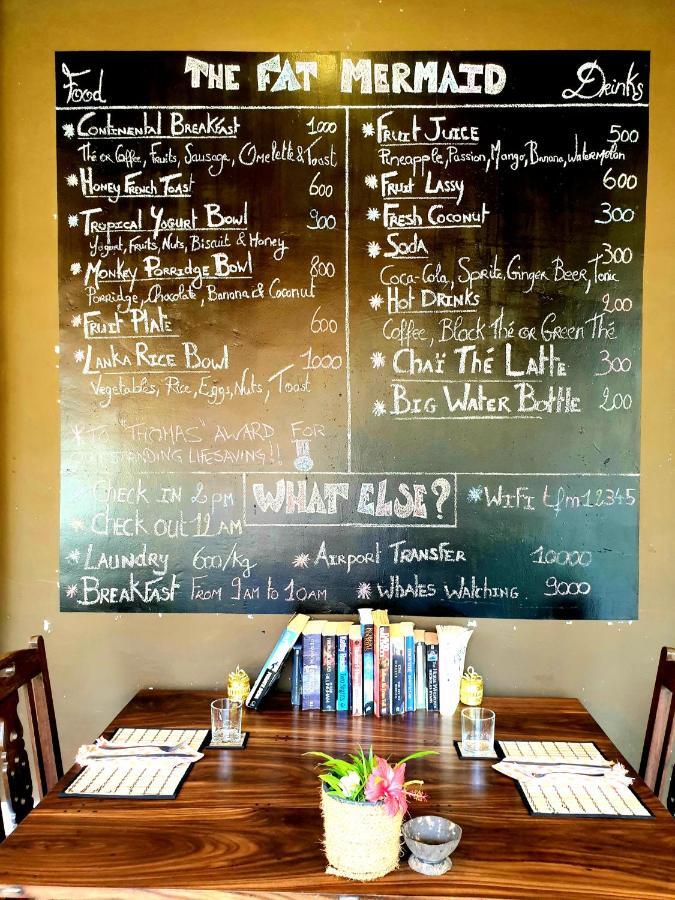 Food
THE FAT MERMAID
Drinks
* CONTINENTAL BREAKFAST 1000
Thé or Coffee, Fruits, Sausage, Omelette & Toast
* HONEY FRENCH TOAST 600
* TROPICAL YOGURT BOWL 900
Yogurt, Fruits, Nuts, Biscuit & Honey
* MONKEY PORRIDGE BOWL 800
Porridge, Chocolate, Banana & Coconut
* FRUIT PLATE 600
* LANKA RICE BOWL 1000
Vegetables, Rice, Eggs, Nuts, Toast
* TO "THOMAS" AWARD FOR
OUTSTANDING LIFESAVING!!
* FRUIT JUICE 500
Pineapple, Passion, Mango, Banana, Watermelon
* FRUIT LASSY 600
* FRESH COCONUT 300
* SODA 300
Coca-Cola, Sprite, Ginger Beer, Tonic
* HOT DRINKS 200
Coffee, Black Thé or Green Thé
* CHAÏ THÉ LATTE 300
* BIG WATER BOTTLE 200
WHAT ELSE?
* CHECK IN 2 PM
* CHECK OUT 12 AM
* WIFI tfm12345
* LAUNDRY 600/Kg
* AIRPORT TRANSFER 10000
* BREAKFAST FROM 9AM TO 10AM
* WHALES WATCHING 9000